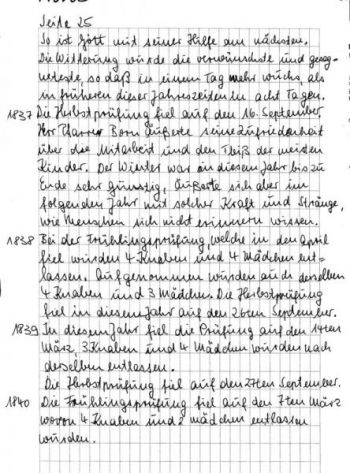 Seite 25
So ist Gott mit seiner Hilfe am nächsten.
Die Witterung wurde die erwünschteste und geseg-
netste, so daß in einem Tag mehr wuchs, als
in früheren dieser Jahreszeiten in acht Tagen.
1837 Die Herbstprüfung fiel auf den 16. September.
Herr Pfarrer Born äußerte seine Zufriedenheit
über die Mitarbeit und den Fleiß der meisten
Kinder. Der Winter war in diesem Jahr bis zu
Ende sehr günstig, äußerte sich aber im
folgenden Jahr mit solcher Kraft und Stränge,
wie Menschen sich nicht erinnern wissen.
1838 Bei der Frühlingsprüfung, welche in den April
fiel wurden 4 Knaben und 4 Mädchen ent-
lassen. Aufgenommen wurden auch derselben
4 Knaben und 3 Mädchen. Die Herbstprüfung
fiel in diesem Jahr auf den 26ten September.
1839 In diesem Jahr fiel die Prüfung auf den 14ten
März, 3 Knaben und 4 Mädchen wurden nach
derselben entlassen.
Die Herbstprüfung fiel auf den 27ten September.
1840 Die Frühlingsprüfung fiel auf den 7ten März
wovon 4 Knaben und 2 mädchen entlassen
wurden.